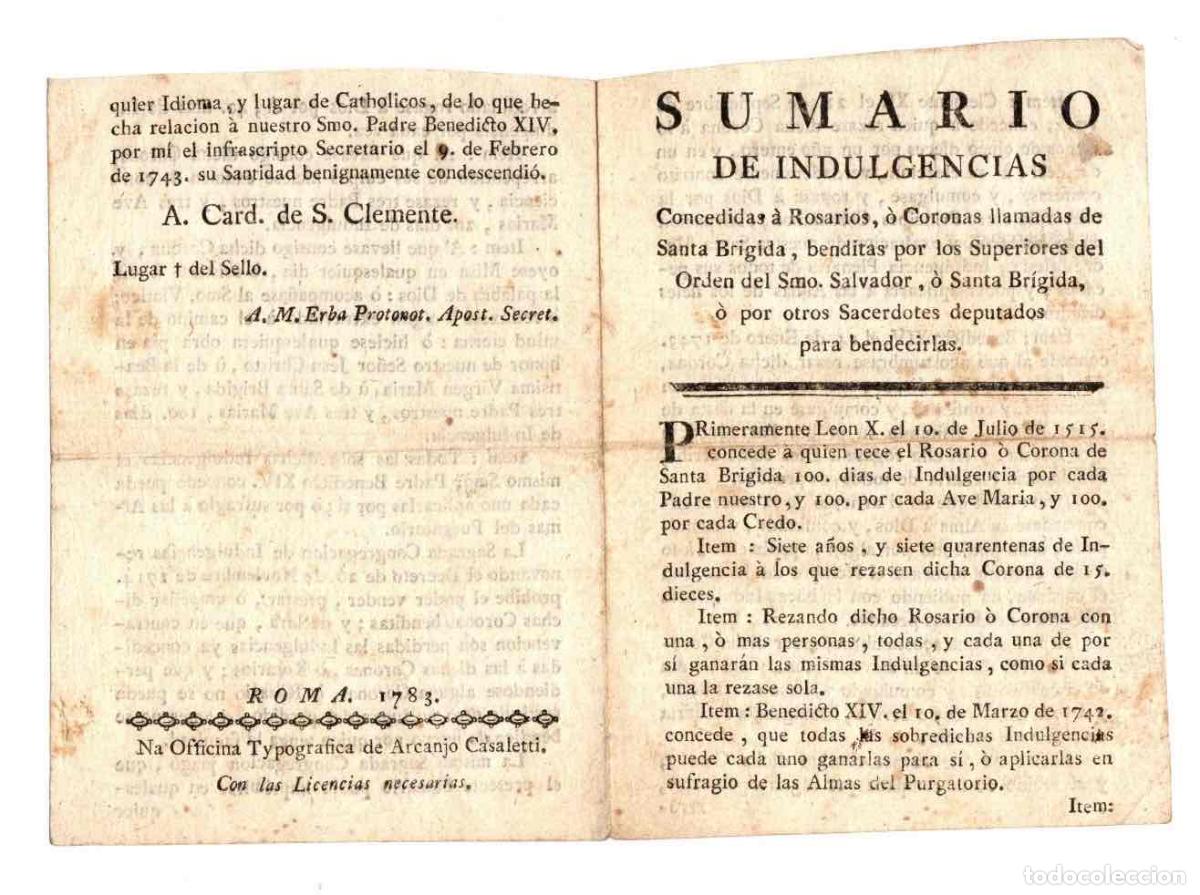 quier Idioma, y lugar de Catholicos, de lo que he-
cha relacion à nuestro Smo. Padre Benedicto XIV.
por mí el infrascripto Secretario el 9. de Febrero
de 1743. su Santidad benignamente condescendió.
A. Card. de S. Clemente.
Lugar † del Sello.
A. M. Erba Protonot. Apost. Secret.
ROMA. 1783.
Na Officina Typografica de Arcanjo Casaletti.
Con las Licencias necesarias.
SUMARIO
DE INDULGENCIAS
Concedidas à Rosarios, ò Coronas llamadas de
Santa Brigida, benditas por los Superiores del
Orden del Smo. Salvador, ò Santa Brígida,
ò por otros Sacerdotes deputados
para bendecirlas.
PRimeramente Leon X. el 10. de Julio de 1515.
concede à quien rece el Rosario ò Corona de
Santa Brigida 100. dias de Indulgencia por cada
Padre nuestro, y 100. por cada Ave Maria, y 100.
por cada Credo.
Item : Siete años, y siete quarentenas de In-
dulgencia à los que rezasen dicha Corona de 15.
dieces.
Item : Rezando dicho Rosario ò Corona con
una, ò mas personas, todas, y cada una de por
sí ganarán las mismas Indulgencias, como si cada
una la rezase sola.
Item : Benedicto XIV. el 10. de Marzo de 1742.
concede, que todas las sobredichas Indulgencias
puede cada uno ganarlas para sí, ò aplicarlas en
sufragio de las Almas del Purgatorio.
Item:
todocoleccion